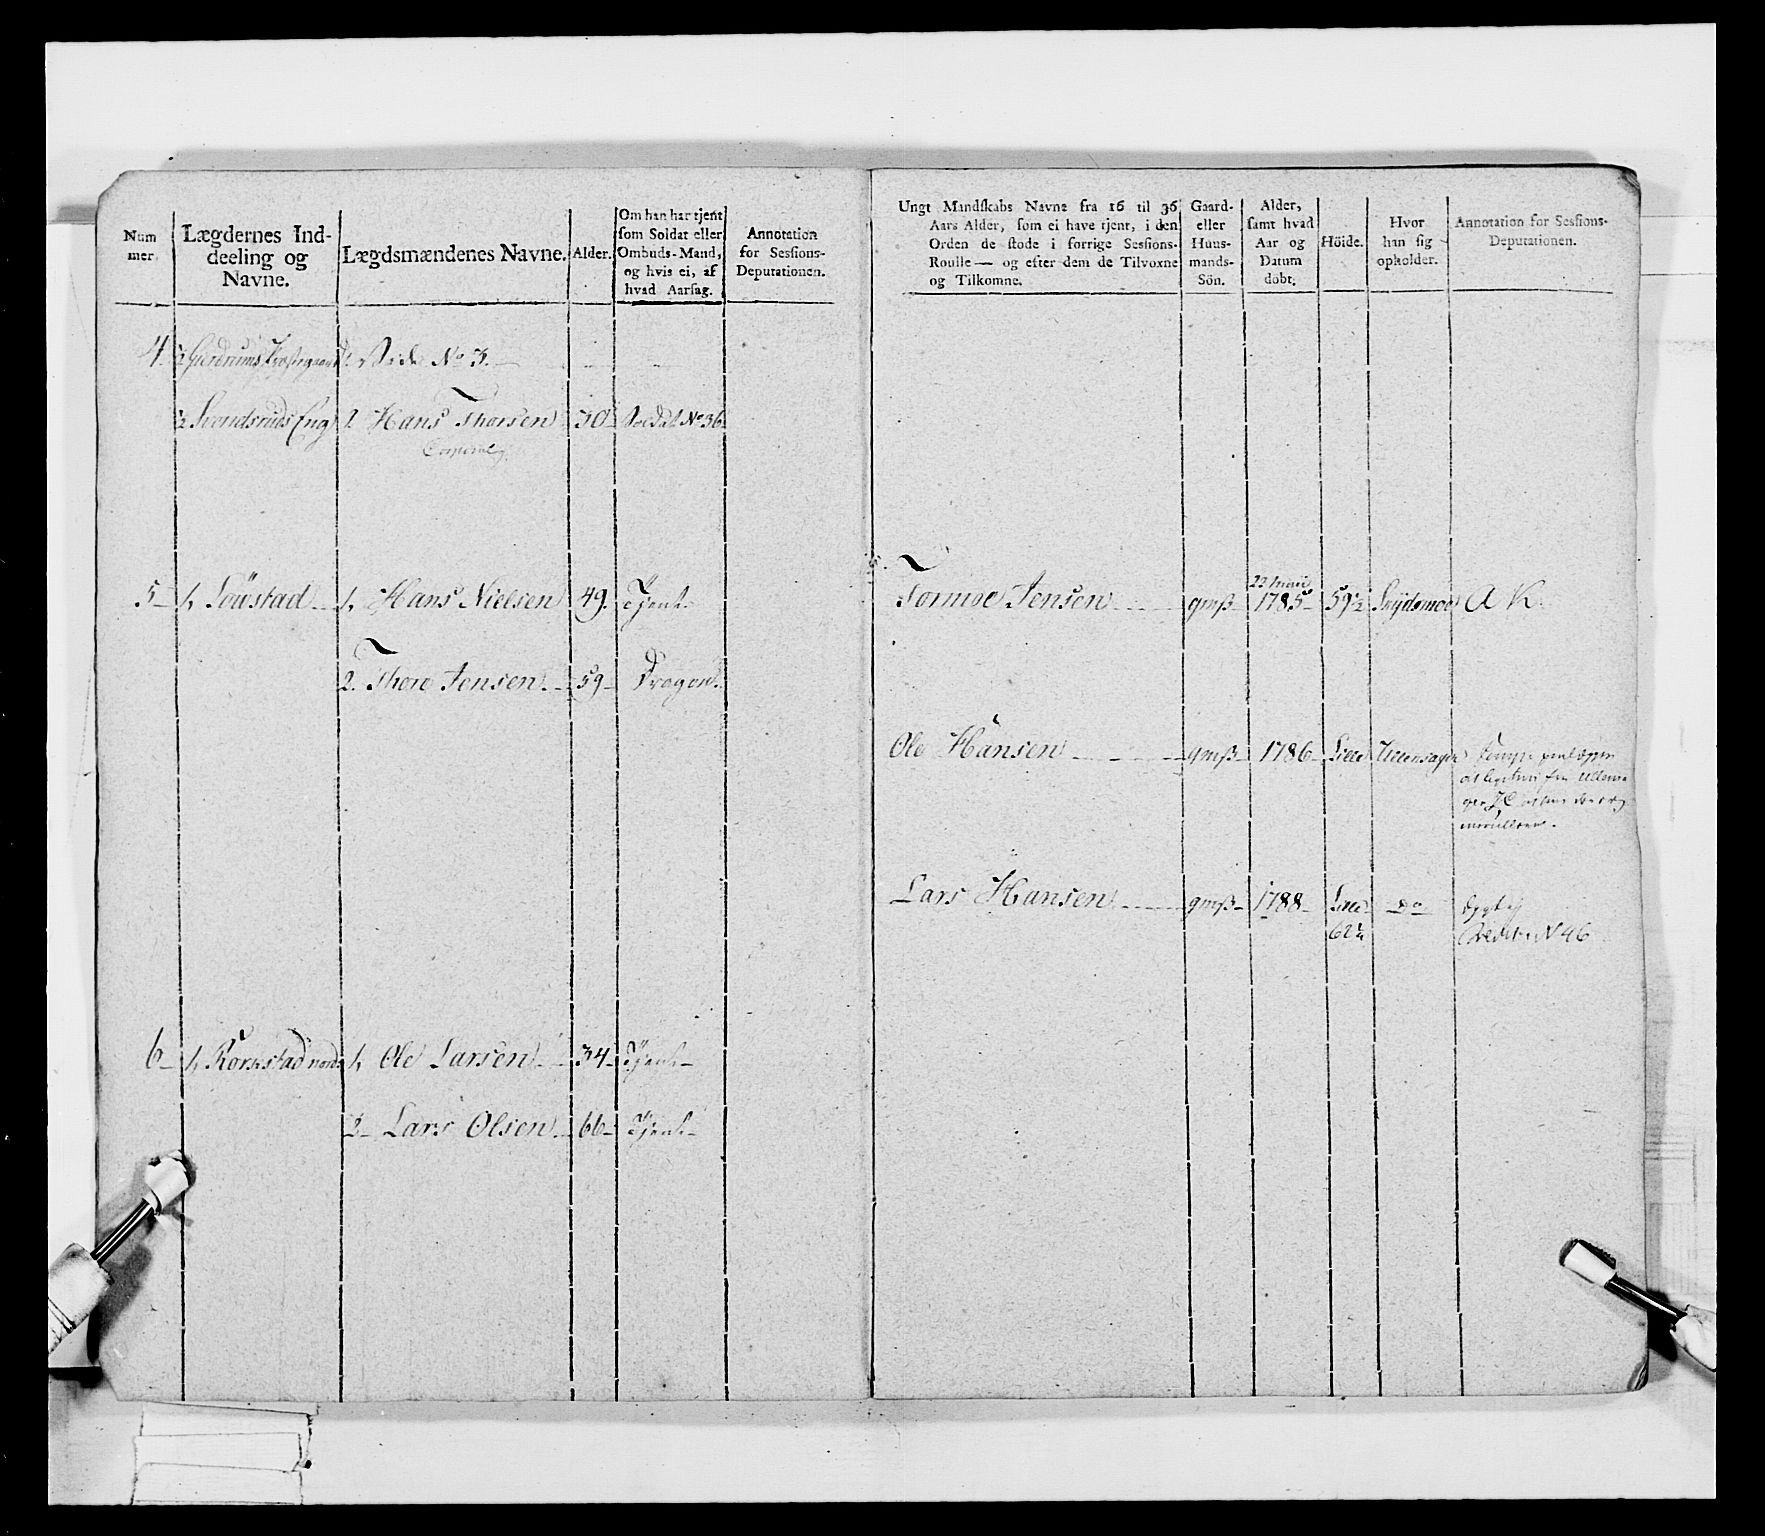 Num
mer.
Lægdernes Ind-
deeling og
Navne.
Lægdsmændenes Navne.
Alder.
Om han har tjent
som Soldat eller
Ombuds-Mand,
og hvis ei, af
hvad Aarsag.
Annotation
for Sessions-
Deputationen.
4. ½ Gierdrums Præstegaard 1. Vide No 3.
½ Svendsruds Eng 2. Hans Thorsen 30 Soldat No 36
Corporal
5 1, Löustad 1, Hans Nielsen 49. Tjent
2. Thore Jensen 59 Dragon
6 1, Rörstad nord 1, Ole Larsen 34 Tjent
2 Lars Olsen 66 Tjent
Ungt Mandskabs Navne fra 16 til 36
Aars Alder, som ei have tjent, i den
Orden de stode i forrige Sessions-
Roulle — og efter dem de Tilvoxne
og Tilkomne.
Gaard-
eller
Huus-
mands-
Sön.
Alder,
samt hvad
Aar og
Datum
döbt.
Höide.
Hvor
han sig
opholder.
Annotation for Sessions-
Deputationen.
5.
22 Maii
Tormoe Jensen gmß 1785 59½ A K.
Ole Hansen gmß 1786 Lille Ullensager
Lars Hansen gmß 1788 Lille Do dygtig
62¼ No 46